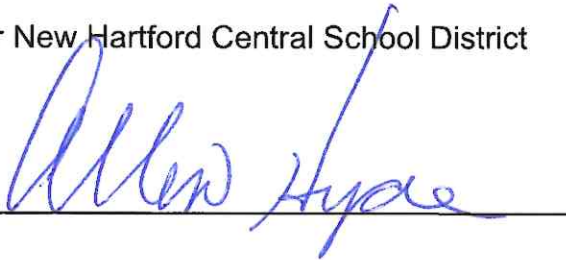 r New Hartford Central School District
Allen Hyde